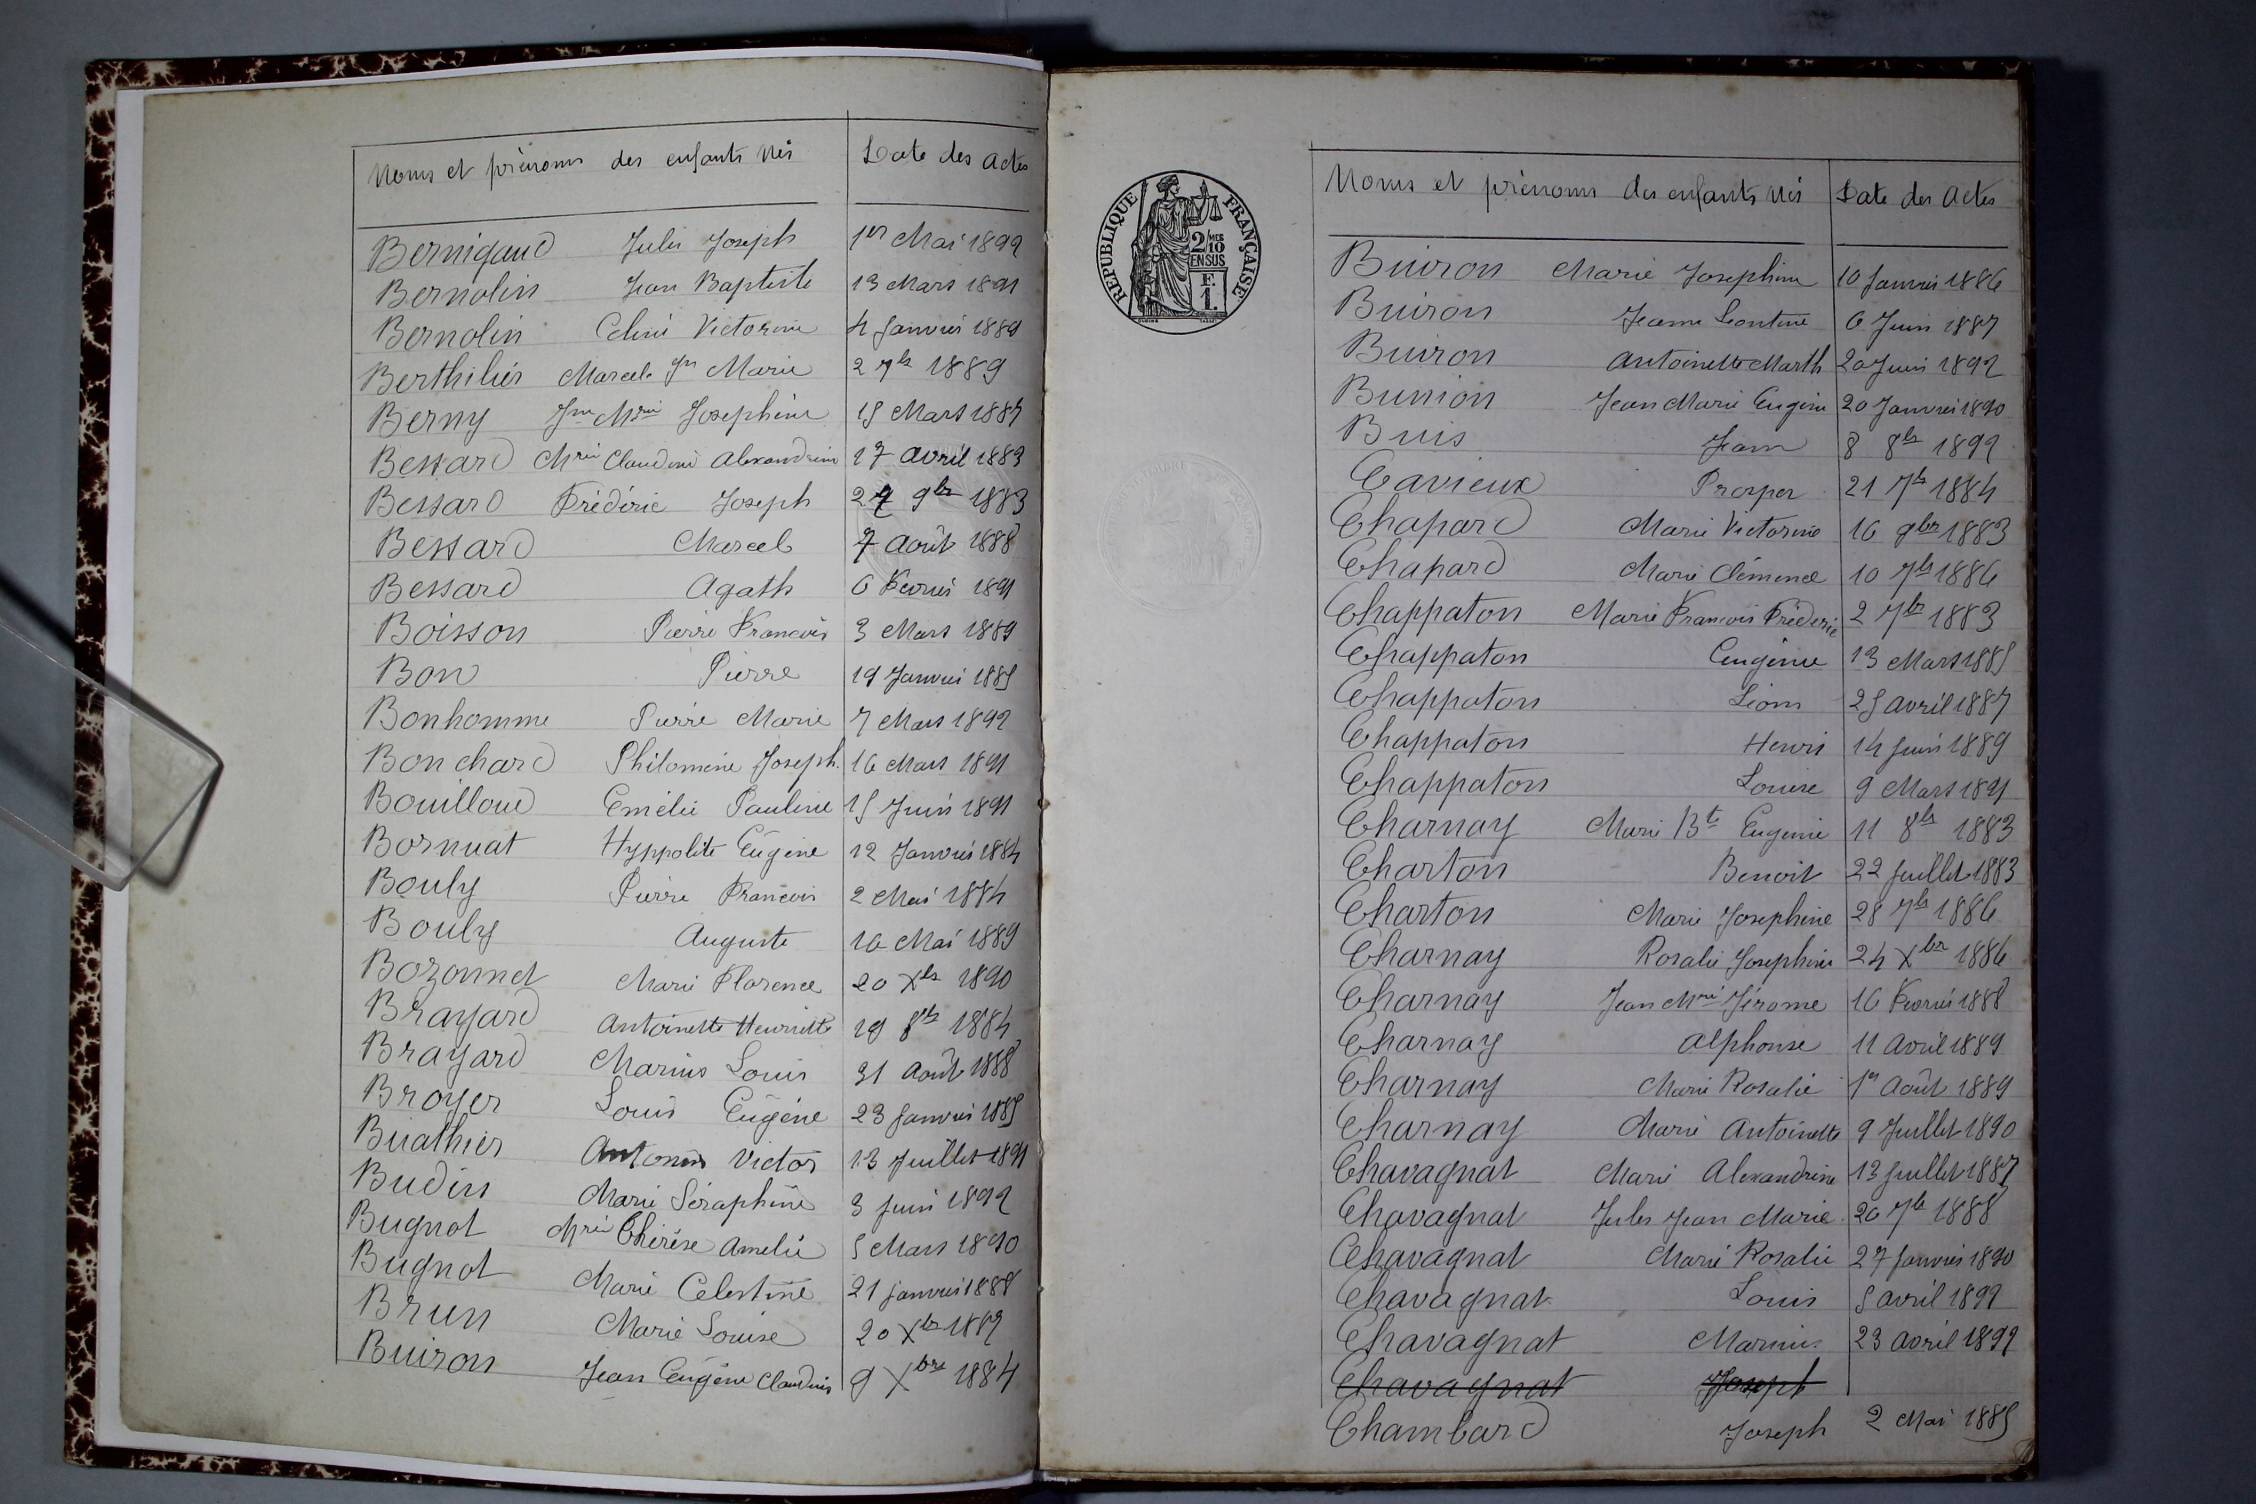 Noms et prénoms des enfants Nés Date des actes
Bernigaud Jules Joseph 1er Mai 1892
Bernolin Jean Baptiste 13 Mars 1891
Bernolin Celine Victorine 4 Janvier 1889
Berthilier Marcel Jn Marie 2 7bre 1889
Berny Jne Mrie Josephine 15 Mars 1887
Bessard Mrie Claudine Alexandrine 17 avril 1883
Bessard Frédéric Joseph 27 9bre 1883
Bessard Marcel 7 Août 1888
Bessard Agath 6 Fevrier 1891
Boisson Pierre François 3 Mars 1889
Bon Pierre 19 Janvier 1885
Bonhomme Pierre Marie 7 Mars 1892
Bonchard Philomène Joseph. 16 Mars 1891
Bouilloud Emélie Pauline 15 Juin 1891
Bornuat Hyppolite Eugène 12 Janvier 1884
Bouly Pierre François 2 Mai 1884
Bouly Auguste 16 Mai 1889
Bozonnet Marie Florence 20 Xbre 1890
Brayard Antoinette Henriette 19 8bre 1884
Brayard Marius Louis 31 Août 1888
Broyer Louis Eugène 23 Janvier 1885
Buathier Antonin Victor 13 Juillet 1891
Budin Marie Séraphine 3 Juin 1892
Bugnot Mrie Thérèse Amelie 5 Mars 1890
Bugnot Marie Celestine 21 janvier 1888
Brun Marie Louise 20 Xbre 1889
Buiron Jean Eugène Claudius 9 Xbre 1884
REPUBLIQUE FRANÇAISE
2/10 MES
EN SUS
F.
1.
Noms et prénoms des enfants Nés Date des Actes
Buiron Marie Josephine 10 Janvier 1886
Buiron Jeanne Leontine 6 Juin 1887
Buiron Antoinette Marth 20 Juin 1892
Bunion Jean Marie Eugène 20 Janvier 1890
Buis Jean 8 8bre 1892
Cavieux Prosper 21 7bre 1884
Chapard Marie Victorine 16 9bre 1883
Chapard Marie Clémence 10 7bre 1886
Chappaton Marie François Fréderic 2 7bre 1883
Chappaton Eugénie 13 Mars 1885
Chappaton Léon 25 avril 1887
Chappaton Henri 14 Juin 1889
Chappaton Louise 9 Mars 1891
Charnay Marie Bte Eugenie 11 8bre 1883
Charton Benoit 22 Juillet 1883
Charton Marie Josephine 28 7bre 1886
Charnay Rosalie Josephine 24 Xbre 1886
Charnay Jean Mrie Jérome 16 Fevrier 1888
Charnay Alphonse 11 Avril 1889
Charnay Marie Rosalie 1er Août 1889
Charnay Marie Antoinette 9 Juillet 1890
Chavagnat Marie Alexandrine 13 Juillet 1887
Chavagnat Jules Jean Marie 26 7bre 1888
Chavagnat Marie Rosalie 27 Janvier 1890
Chavagnat Louis 5 avril 1892
Chavagnat Marius 23 avril 1892
Chavagnat Joseph
Chambard Joseph 2 Mai 1885